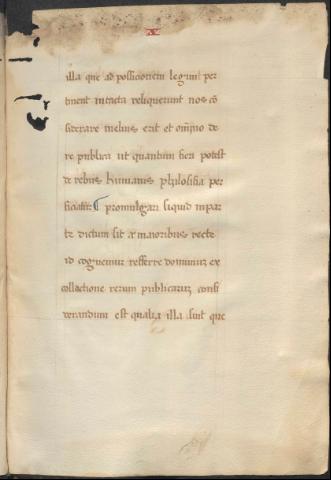 X
illa que ad possicionem legum per
tinent intacta reliquerunt nos cō
siderare melius erit et om̅ino de
re publica ut quantum fieri potest
de rebus humanis philosofia per
ficiatur ¶ promulgari siquid inpar
te dictum sit a maioribus recte
id cognemur refferre dominum ex
collactione rerum publicarum consi
derandum est qualia illa sint que